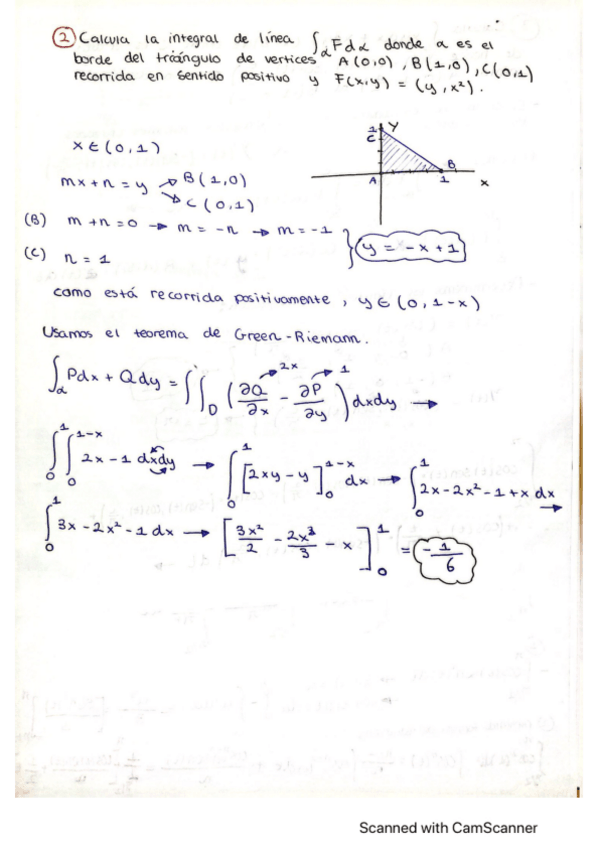 ② Calcula la integral de línea ∫_α F dα donde α es el
borde del triángulo de vertices A(0,0), B(1,0), C(0,1)
recorrida en sentido positivo y F(x,y) = (y, x²).
x ∈ (0,1)
mx + n = y → B(1,0)
→ C(0,1)
(B) m + n = 0 → m = -n → m = -1
(C) n = 1
y = -x + 1
1 y
C
A
B
1
x
como está recorrida positivamente, y ∈ (0, 1-x)
Usamos el teorema de Green-Riemann.
∫_α Pdx + Qdy = ∫∫_D (∂Q/∂x - ∂P/∂y) dxdy →
2x 1
∫_0^1 ∫_0^{1-x} 2x - 1 dxdy → ∫_0^1 [2xy - y]_0^{1-x} dx → ∫_0^1 2x - 2x² - 1 + x dx →
∫_0^1 3x - 2x² - 1 dx → [3x²/2 - 2x³/3 - x]_0^1 = -1/6
Scanned with CamScanner